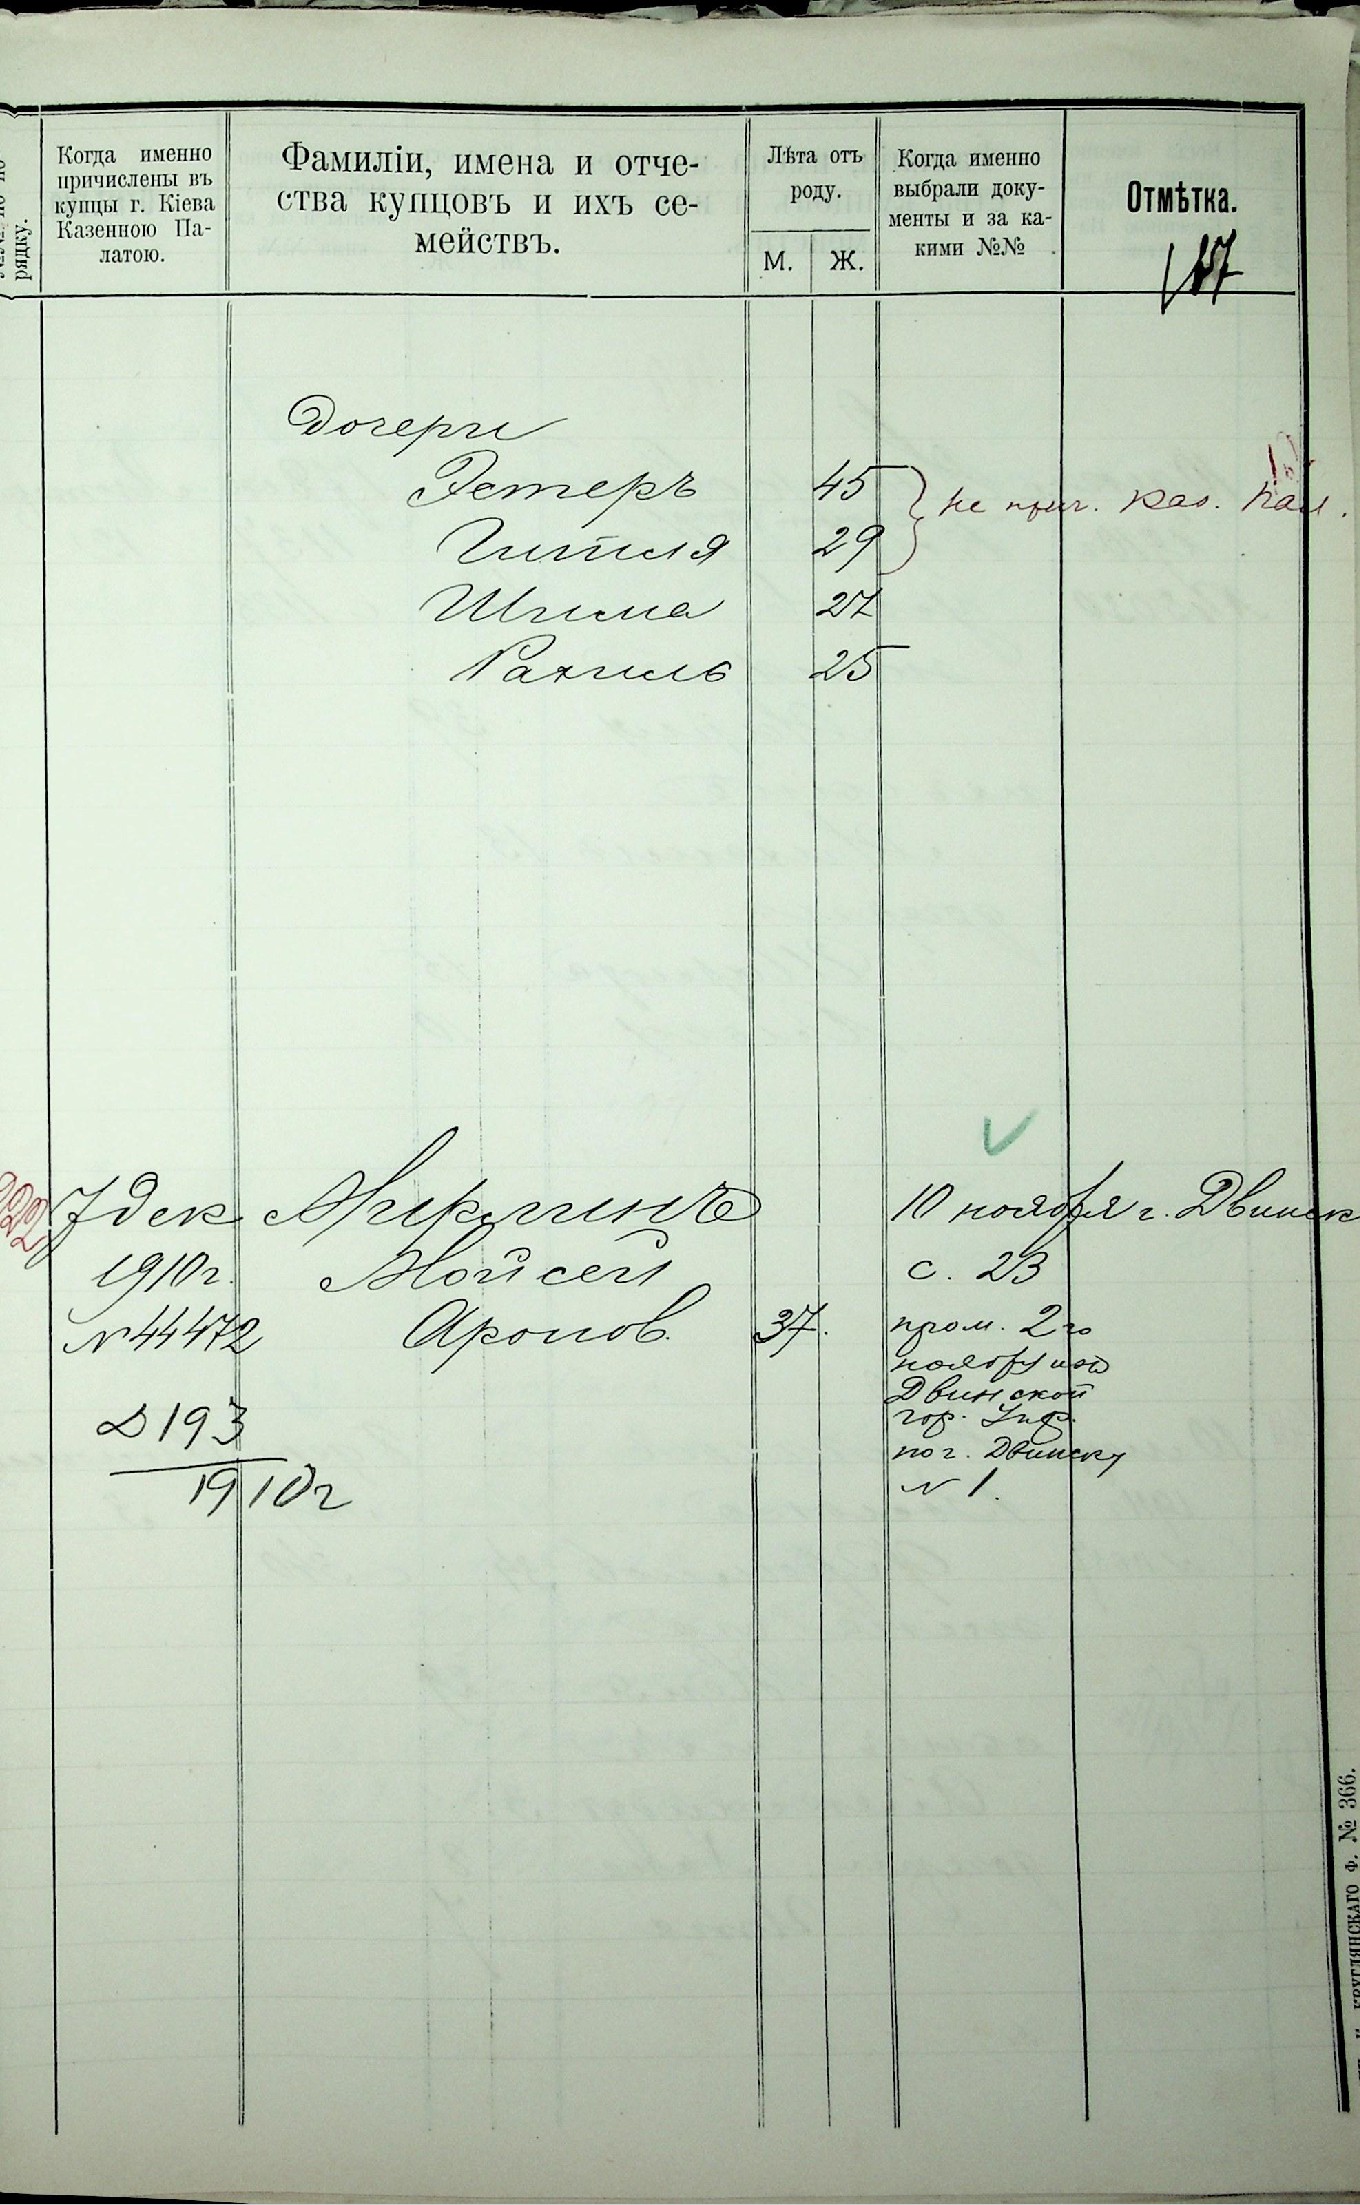 рядку.
Когда именно
причислены въ
купцы г. Кіева
Казенною Па-
латою.
Фамиліи, имена и отче-
ства купцовъ и ихъ се-
мействъ.
Лѣта отъ
роду.
М.
Ж.
Когда именно
выбрали доку-
менты и за ка-
кими №№
Отмѣтка.
Дочери
Эстеръ 45
Гитля 29
не прич. Каз. Пал.
Шима 27
Рахиль 25
222
7 дек
1910 г.
№ 44472
Д 193
1910 г
Мойсей
Аронов. 37.
10 ноября г. Двинск
с. 23
пром. 2го
Двинской
гор. Упр.
по г. Двинску
№ 1.
КРУГЛЯНСКАГО Ф. № 366.